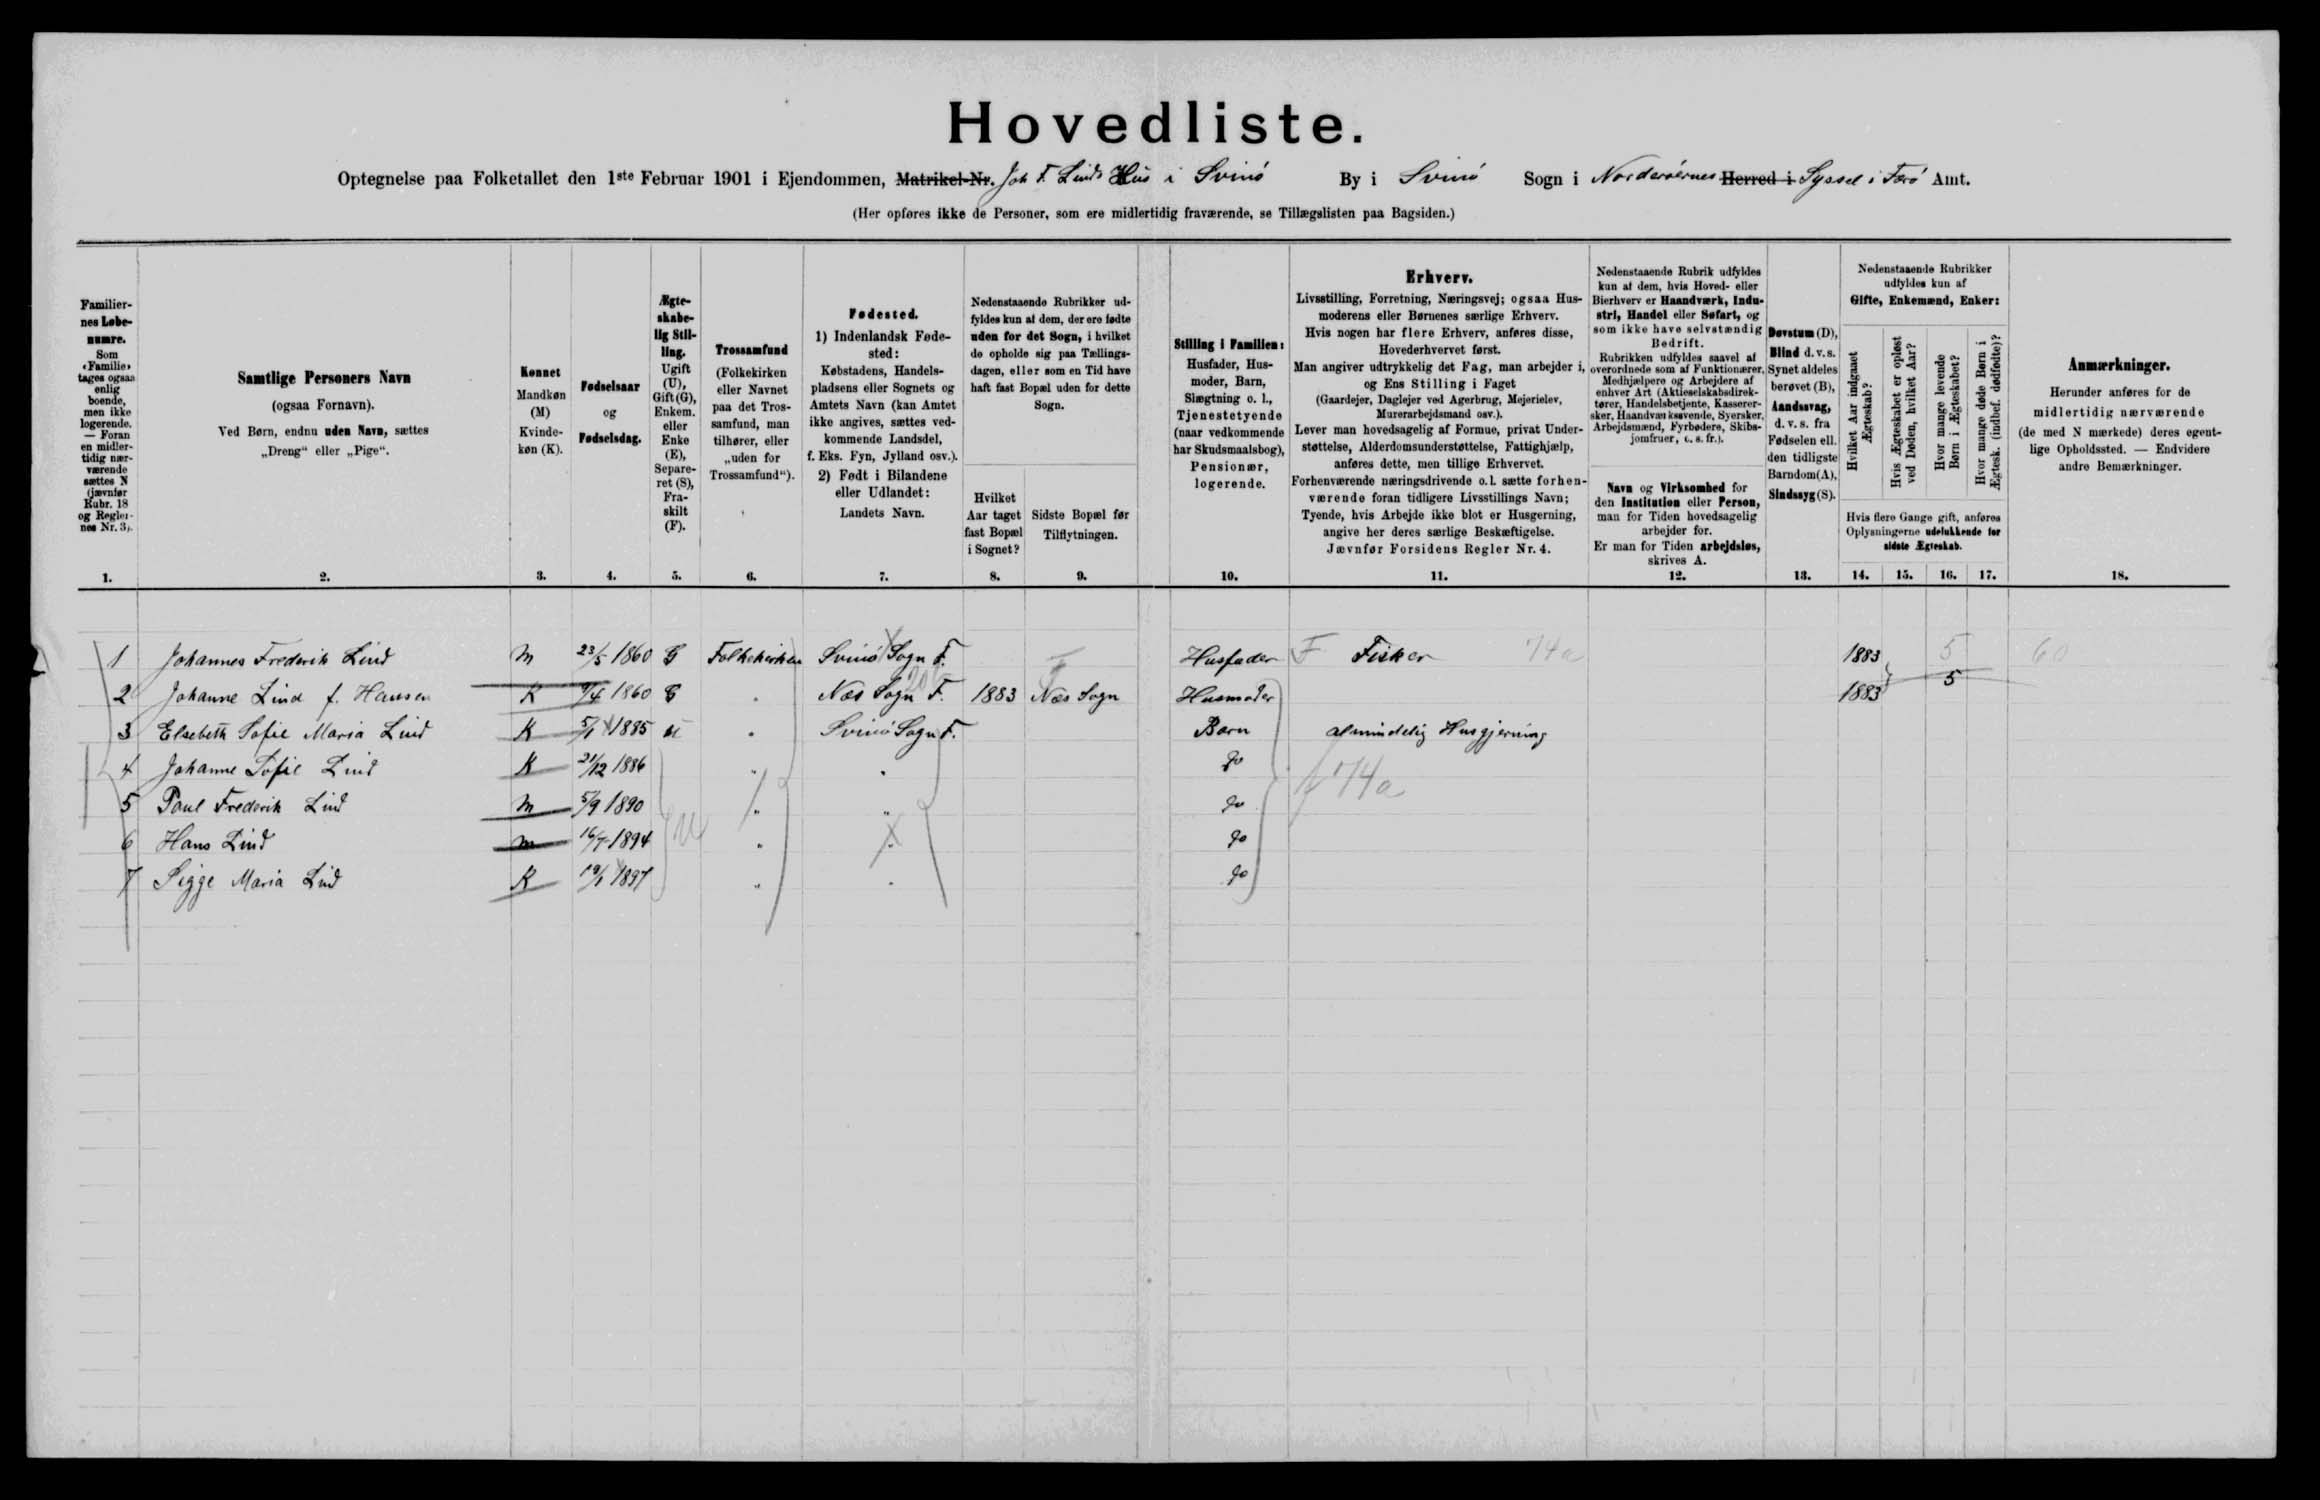 Hovedliste.
Optegnelse paa Folketallet den 1ste Februar 1901 i Ejendommen, Matrikel-Nr. Joh F. Linds Hus i Svinö By i Svinö Sogn i Norderöernes Herred i Syssel i Færö Amt.
(Her opføres ikke de Personer, som ere midlertidig fraværende, se Tillægslisten paa Bagsiden.)
Familiernes Løbenumre.
Som «Familie» tages ogsaa enlig boende, men ikke logerende. — Foran en midlertidig nærværende sættes N (jævnfør Rubr. 18 og Reglernes Nr. 3).
1.
Samtlige Personers Navn
(ogsaa Fornavn).
Ved Børn, endnu uden Navn, sættes
„Dreng“ eller „Pige“.
2.
Kønnet
Mandkøn (M)
Kvindekøn (K).
3.
Fødselsaar
og
Fødselsdag.
4.
Ægteskabelig Stilling.
Ugift (U), Gift (G), Enkem. eller Enke (E), Separeret (S), Fraskilt (F).
5.
Trossamfund
(Folkekirken eller Navnet paa det Trossamfund, man tilhører, eller „uden for Trossamfund“).
6.
Fødested.
1) Indenlandsk Fødested:
Købstadens, Handelspladsens eller Sognets og Amtets Navn (kan Amtet ikke angives, sættes vedkommende Landsdel, f. Eks. Fyn, Jylland osv.).
2) Født i Bilandene eller Udlandet:
Landets Navn.
7.
Nedenstaaende Rubrikker udfyldes kun af dem, der ere fødte uden for det Sogn, i hvilket de opholde sig paa Tællingsdagen, eller som en Tid have haft fast Bopæl uden for dette Sogn.
Hvilket Aar taget fast Bopæl i Sognet?
8.
Sidste Bopæl før Tilflytningen.
9.
Stilling i Familien:
Husfader, Husmoder, Barn, Slægtning o. l., Tjenestetyende (naar vedkommende har Skudsmaalsbog), Pensionær, logerende.
10.
Erhverv.
Livsstilling, Forretning, Næringsvej; ogsaa Husmoderens eller Børnenes særlige Erhverv.
Hvis nogen har flere Erhverv, anføres disse, Hovederhvervet først.
Man angiver udtrykkelig det Fag, man arbejder i, og Ens Stilling i Faget
(Gaardejer, Daglejer ved Agerbrug, Mejerielev, Murerarbejdsmand osv.).
Lever man hovedsagelig af Formue, privat Understøttelse, Alderdomsunderstøttelse, Fattighjælp, anføres dette, men tillige Erhvervet.
Forhenværende næringsdrivende o. l. sætte forhenværende foran tidligere Livsstillings Navn;
Tyende, hvis Arbejde ikke blot er Husgerning, angive her deres særlige Beskæftigelse.
Jævnfør Forsidens Regler Nr. 4.
11.
Nedenstaaende Rubrik udfyldes kun af dem, hvis Hoved- eller Bierhverv er Haandværk, Industri, Handel eller Søfart, og som ikke have selvstændig Bedrift.
Rubrikken udfyldes saavel af overordnede som af Funktionærer, Medhjælpere og Arbejdere af enhver Art (Aktieselskabsdirektører, Handelsbetjente, Kasserersker, Haandværksøvende, Syersker, Arbejdsmænd, Fyrbødere, Skibsjomfruer, o. s. fr.).
Navn og Virksomhed for den Institution eller Person, man for Tiden hovedsagelig arbejder for.
Er man for Tiden arbejdsløs, skrives A.
12.
Døvstum (D), Blind d. v. s. Synet aldeles berøvet (B), Aandssvag, d. v. s. fra Fødselen ell. den tidligste Barndom (A), Sindssyg (S).
13.
Nedenstaaende Rubrikker udfyldes kun af
Gifte, Enkemænd, Enker:
Hvilket Aar indgaaet Ægteskab?
Hvis Ægteskabet er opløst ved Døden, hvilket Aar?
Hvor mange levende Børn i Ægteskabet?
Hvor mange døde Børn i Ægtesk. (indbef. dødfødte)?
Hvis flere Gange gift, anføres Oplysningerne udelukkende for sidste Ægteskab.
14. 15. 16. 17.
Anmærkninger.
Herunder anføres for de midlertidig nærværende (de med N mærkede) deres egentlige Opholdssted. — Endvidere andre Bemærkninger.
18.
1 Johannes Frederik Lind M 23/5 1860 G Folkekirken Svinö Sogn F. Husfader F Fisker 74a 1883 5 60
2 Johanne Lind f. Hansen K 9/4 1860 G " Næs Sogn F. 1883 Næs Sogn Husmoder 1883 5
3 Elsebeth Sofie Maria Lind K 5/1 1885 U " Svinö Sogn F. Barn almindelig Husgjerning
4 Johanne Sofie Lind K 21/12 1886 " " do 74a
5 Poul Frederik Lind M 5/9 1890 " " do
6 Hans Lind M 16/7 1894 U " " do
7 Sigge Maria Lind K 19/1 1897 " " do